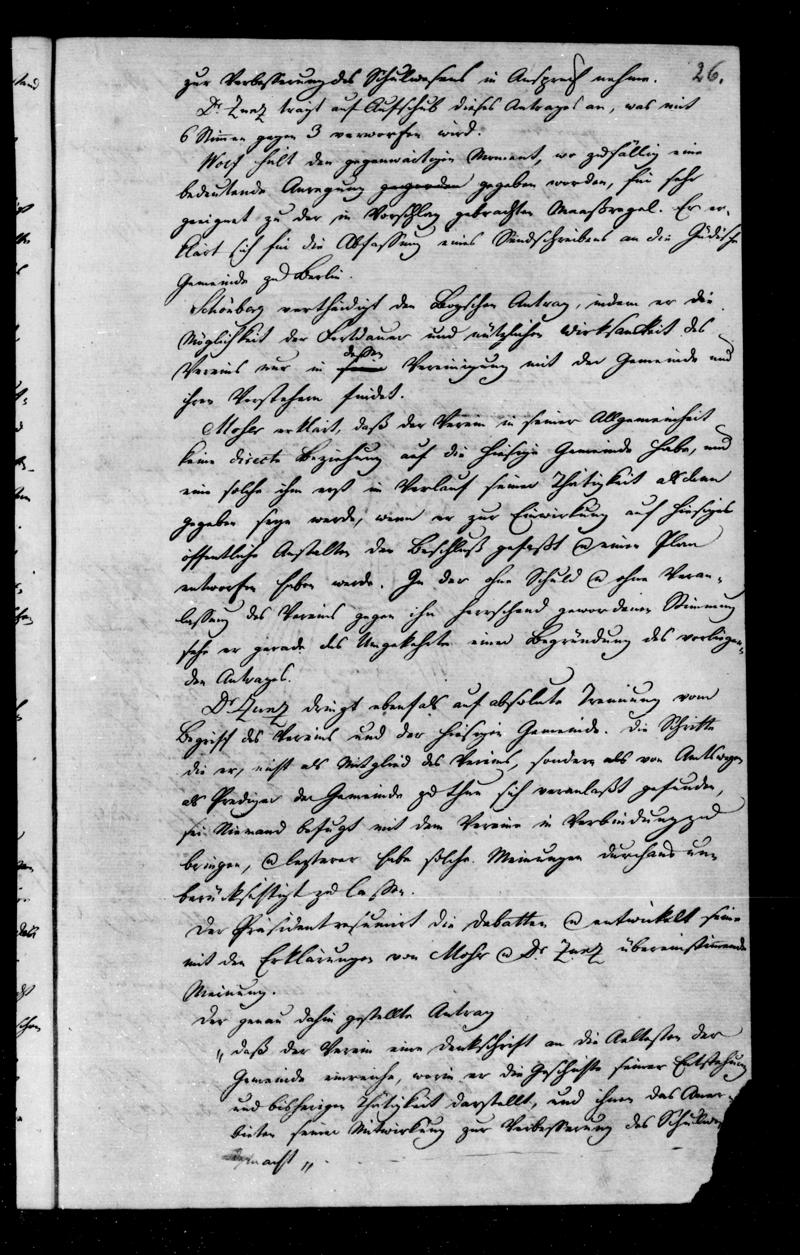 26.
zur Verbesserung des Schulwesens in Anspruch nehme.
Dr. Zunz trägt auf Aufschub dieses Antrages an, was mit
6 Stimmen gegen 3 verworfen wird.
Wolf hält den gegenwärtigen Moment, wo zufällig eine
bedeutende Anregung gegeben worden, für sehr
geeignet zu der in Vorschlag gebrachten Maaßregel. Er er-
klärt sich für die Abfassung eines Sendschreibens an die Jüdische
Gemeinde zu Berlin.
Schönberg vertheidigt den Antrag, indem er die
Möglichkeit der Fortdauer und nützlichen Wirksamkeit des
Vereins nur in dessen Vereinigung mit der Gemeinde und
ihren Vorstehern findet.
Mohr erklärt, daß der Verein in seiner Allgemeinheit
keine directe Beziehung auf die hiesige Gemeinde habe, und
eine solche ihm erst in Verlauf seiner Thätigkeit alsdann
gegeben seyn werde, wenn er zur Einwirkung auf hiesige
öffentliche Anstalten den Beschluß gefaßt u einen Plan
entworfen haben werde. In der ohne Schuld u ohne Veran-
lassung des Vereins gegen ihn herrschend gewordenen Stimmung
sehe er gerade das Umgekehrte einer Begründung des vorliegen-
den Antrages.
Dr Zunz dringt ebenfals auf absolute Trennung vom
Begriff des Vereins und der hiesigen Gemeinde. Die Schritte
die er, nicht als Mitglied des Vereins, sondern als von Amtswegen
als Prediger der Gemeinde zu thun sich veranlaßt gefunden,
sei Niemand befugt mit dem Vereine in Verbindung zu
bringen, u letzterer habe solche Meinungen durchaus un-
berücksichtigt zu lassen.
Der Präsident resumirt die Debatten u entwickelt seine
mit den Erklärungen von Mohr u Dr Zunz übereinstimmende
Meinung.
Der genau dahin gestellte Antrag
„daß der Verein eine Denkschrift an die Aeltesten der
Gemeinde einreiche, worin er die Geschichte seiner Entstehung
und bisherigen Thätigkeit darstellt, und ihnen das Aner-
bieten seiner Mitwirkung zur Verbesserung des
macht„